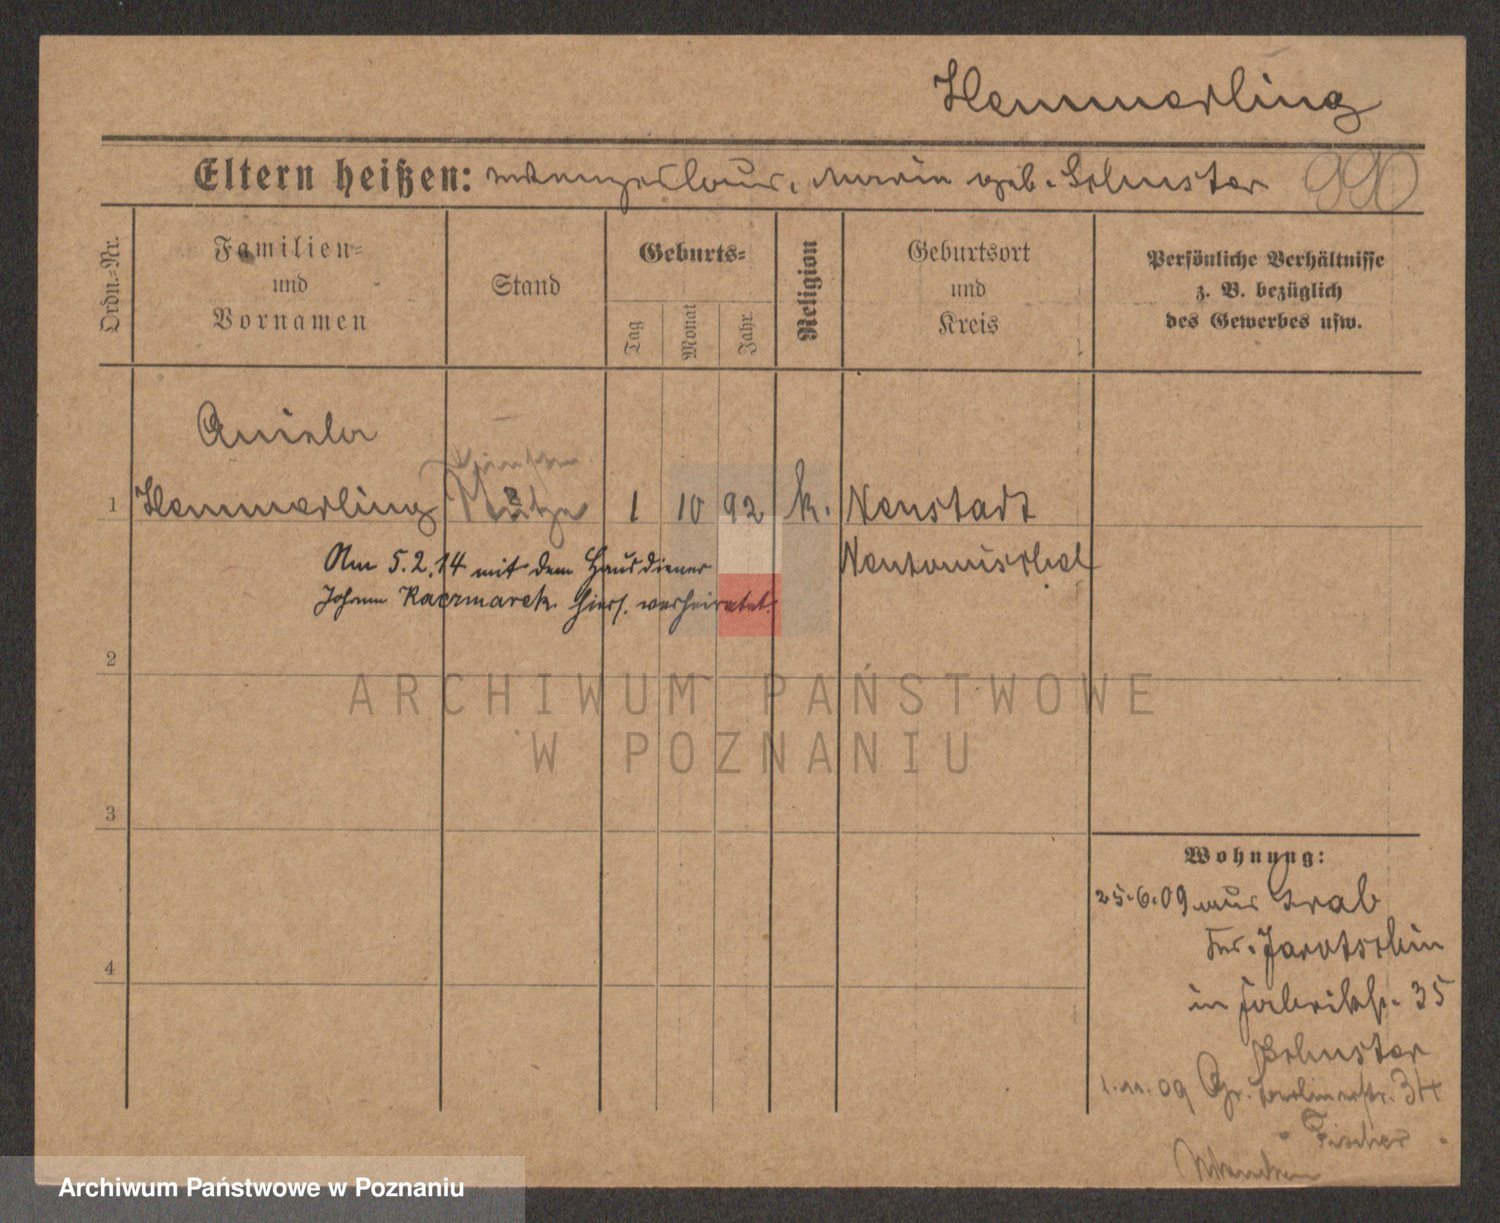 Hemmerling
Eltern heißen: Wenzeslaus, Marie geb. Schuster 990
Ordn.=Nr.
Familien=
und
Vornamen
Stand
Geburts=
Tag
Monat
Jahr
Religion
Geburtsort
und
Kreis
Persönliche Verhältnisse
z. B. bezüglich
des Gewerbes usw.
Aniela
1 Hemmerling Stütze 1 10 92 k. Neustadt
Neutomischel
Am 5.2.14 mit dem Hausdiener
Johann Kaczmarek hiers. verheiratet.
2
3
4
ARCHIWUM PAŃSTWOWE
W POZNANIU
Wohnung:
25.6.09 aus
Jarotschin
in Fabrikstr. 35
Schuster
1.11.09 Gr. Berlinerstr. 34
Fischer
Archiwum Państwowe w Poznaniu